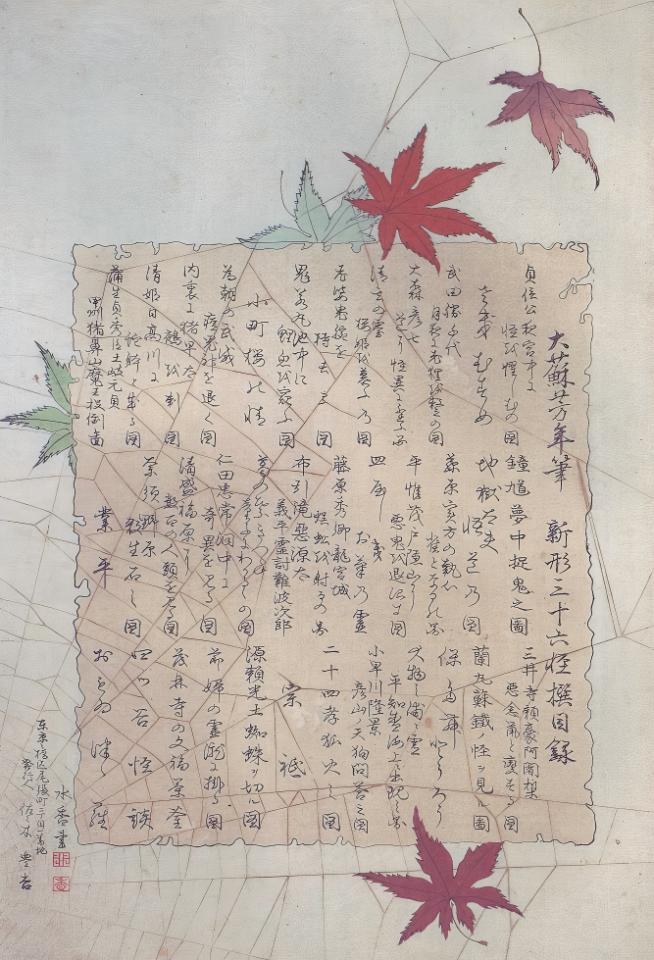 大蘇芳年筆 新形三十六怪撰目録
貞信公夜宮中に
怪を懼しむの図
さぎ むすめ
武田勝千代
月夜に老狸を撃の図
大森彦七
道に怪異に逢ふ図
清玄の霊
桜姫を慕ふの図
老婆鬼腕を
持去る図
鬼若丸池中に
鯉魚を窺ふ図
小町桜の精
為朝の武威
痘鬼神を退く図
内裏に猪早太
鵺を刺図
清姫日高川に
蛇躰と成る図
蒲生貞秀臣土岐元貞
甲州猪鼻山魔王投倒図
鐘馗夢中捉鬼之圖
地獄太夫
悟道の図
藤原実方の執心
雀となるの図
平惟茂戸隠山に
悪鬼を退治す図
皿やしき
お菊の霊
藤原秀郷龍宮城
蜈蚣を射るの図
布引滝悪源太
義平霊討難波次郎
葛の葉きつね
童子にわかるゝの図
仁田忠常洞中に
奇異を見る図
清盛福原に
人頭を見る図
那須野原
殺生石之図
業平
三井寺頼豪阿闍梨
悪念鼠と変ずる図
蘭丸蘇鐵ノ怪ヲ見ル圖
とうろう
大物之浦ニ霊
平知盛海上に出現之図
小早川隆景
彦山ノ天狗問答之図
二十四孝狐火之図
宗祗
源頼光土蜘蛛ヲ切ル図
節婦の霊滝に掛る図
茂林寺の文福茶釜
四ツ谷怪談
おもゐ
水香書
尾張町二丁目一番地
発行人 佐々木豊吉